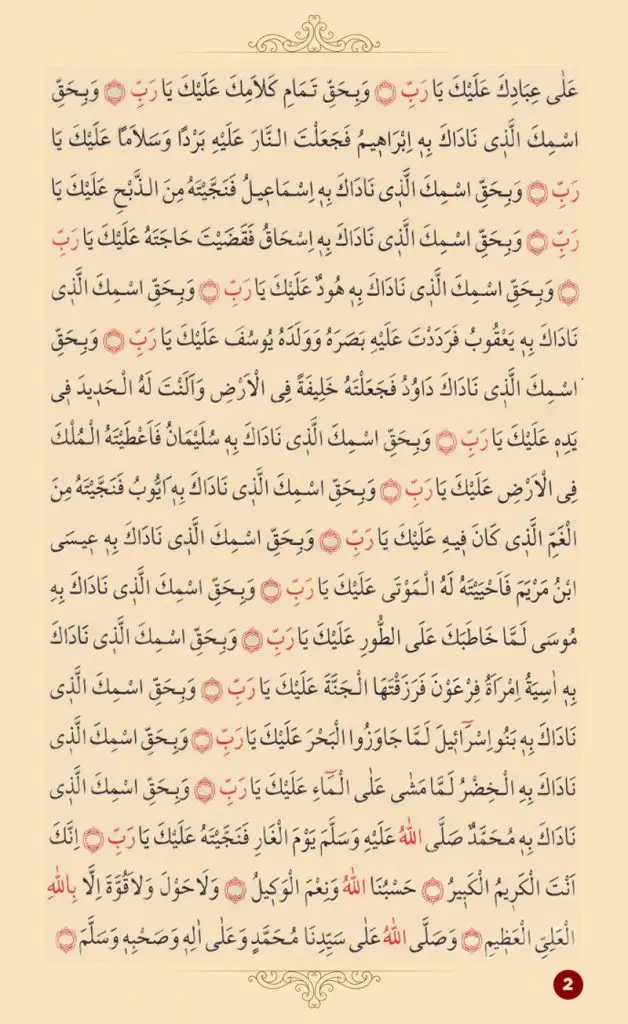 عَلٰى عِبَادِكَ عَلَيْكَ يَا رَبِّ ۝ وَبِحَقِّ تَمَامِ كَلَامِكَ عَلَيْكَ يَا رَبِّ ۝ وَبِحَقِّ
اسْمِكَ الَّذٖى نَادَاكَ بِهٖ اِبْرَاهٖيمُ فَجَعَلْتَ النَّارَ عَلَيْهِ بَرْدًا وَسَلَامًا عَلَيْكَ يَا
رَبِّ ۝ وَبِحَقِّ اسْمِكَ الَّذٖى نَادَاكَ بِهٖ اِسْمَاعٖيلُ فَنَجَّيْتَهُ مِنَ الذَّبْحِ عَلَيْكَ يَا
رَبِّ ۝ وَبِحَقِّ اسْمِكَ الَّذٖى نَادَاكَ بِهٖ اِسْحَاقُ فَقَضَيْتَ حَاجَتَهُ عَلَيْكَ يَا رَبِّ
۝ وَبِحَقِّ اسْمِكَ الَّذٖى نَادَاكَ بِهٖ هُودٌ عَلَيْكَ يَا رَبِّ ۝ وَبِحَقِّ اسْمِكَ الَّذٖى
نَادَاكَ بِهٖ يَعْقُوبُ فَرَدَدْتَ عَلَيْهِ بَصَرَهُ وَوَلَدَهُ يُوسُفَ عَلَيْكَ يَا رَبِّ ۝ وَبِحَقِّ
اسْمِكَ الَّذٖى نَادَاكَ دَاوُدُ فَجَعَلْتَهُ خَلٖيفَةً فِى الْاَرْضِ وَاَلَنْتَ لَهُ الْحَدٖيدَ فٖى
يَدِهٖ عَلَيْكَ يَا رَبِّ ۝ وَبِحَقِّ اسْمِكَ الَّذٖى نَادَاكَ بِهٖ سُلَيْمَانُ فَاَعْطَيْتَهُ الْمُلْكَ
فِى الْاَرْضِ عَلَيْكَ يَا رَبِّ ۝ وَبِحَقِّ اسْمِكَ الَّذٖى نَادَاكَ بِهٖ اَيُّوبُ فَنَجَّيْتَهُ مِنَ
الْغَمِّ الَّذٖى كَانَ فٖيهِ عَلَيْكَ يَا رَبِّ ۝ وَبِحَقِّ اسْمِكَ الَّذٖى نَادَاكَ بِهٖ عٖيسَى
ابْنُ مَرْيَمَ فَاَحْيَيْتَهُ لَهُ الْمَوْتَى عَلَيْكَ يَا رَبِّ ۝ وَبِحَقِّ اسْمِكَ الَّذٖى نَادَاكَ بِهٖ
مُوسَى لَمَّا خَاطَبَكَ عَلَى الطُّورِ عَلَيْكَ يَا رَبِّ ۝ وَبِحَقِّ اسْمِكَ الَّذٖى نَادَاكَ
بِهٖ اٰسِيَةُ اِمْرَاَةُ فِرْعَوْنَ فَرَزَقْتَهَا الْجَنَّةَ عَلَيْكَ يَا رَبِّ ۝ وَبِحَقِّ اسْمِكَ الَّذٖى
نَادَاكَ بِهٖ بَنُو اِسْرَٓائٖيلَ لَمَّا جَاوَزُوا الْبَحْرَ عَلَيْكَ يَا رَبِّ ۝ وَبِحَقِّ اسْمِكَ الَّذٖى
نَادَاكَ بِهِ الْخِضْرُ لَمَّا مَشٰى عَلَى الْمَٓاءِ عَلَيْكَ يَا رَبِّ ۝ وَبِحَقِّ اسْمِكَ الَّذٖى
نَادَاكَ بِهٖ مُحَمَّدٌ صَلَّى اللّٰهُ عَلَيْهِ وَسَلَّمَ يَوْمَ الْغَارِ فَنَجَّيْتَهُ عَلَيْكَ يَا رَبِّ ۝ اِنَّكَ
اَنْتَ الْكَرٖيمُ الْكَبٖيرُ ۝ حَسْبُنَا اللّٰهُ وَنِعْمَ الْوَكٖيلُ ۝ وَلَا حَوْلَ وَلَا قُوَّةَ اِلَّا بِاللّٰهِ
الْعَلِىِّ الْعَظٖيمِ ۝ وَصَلَّى اللّٰهُ عَلٰى سَيِّدِنَا مُحَمَّدٍ وَعَلٰى اٰلِهٖ وَصَحْبِهٖ وَسَلَّمَ ۝
2